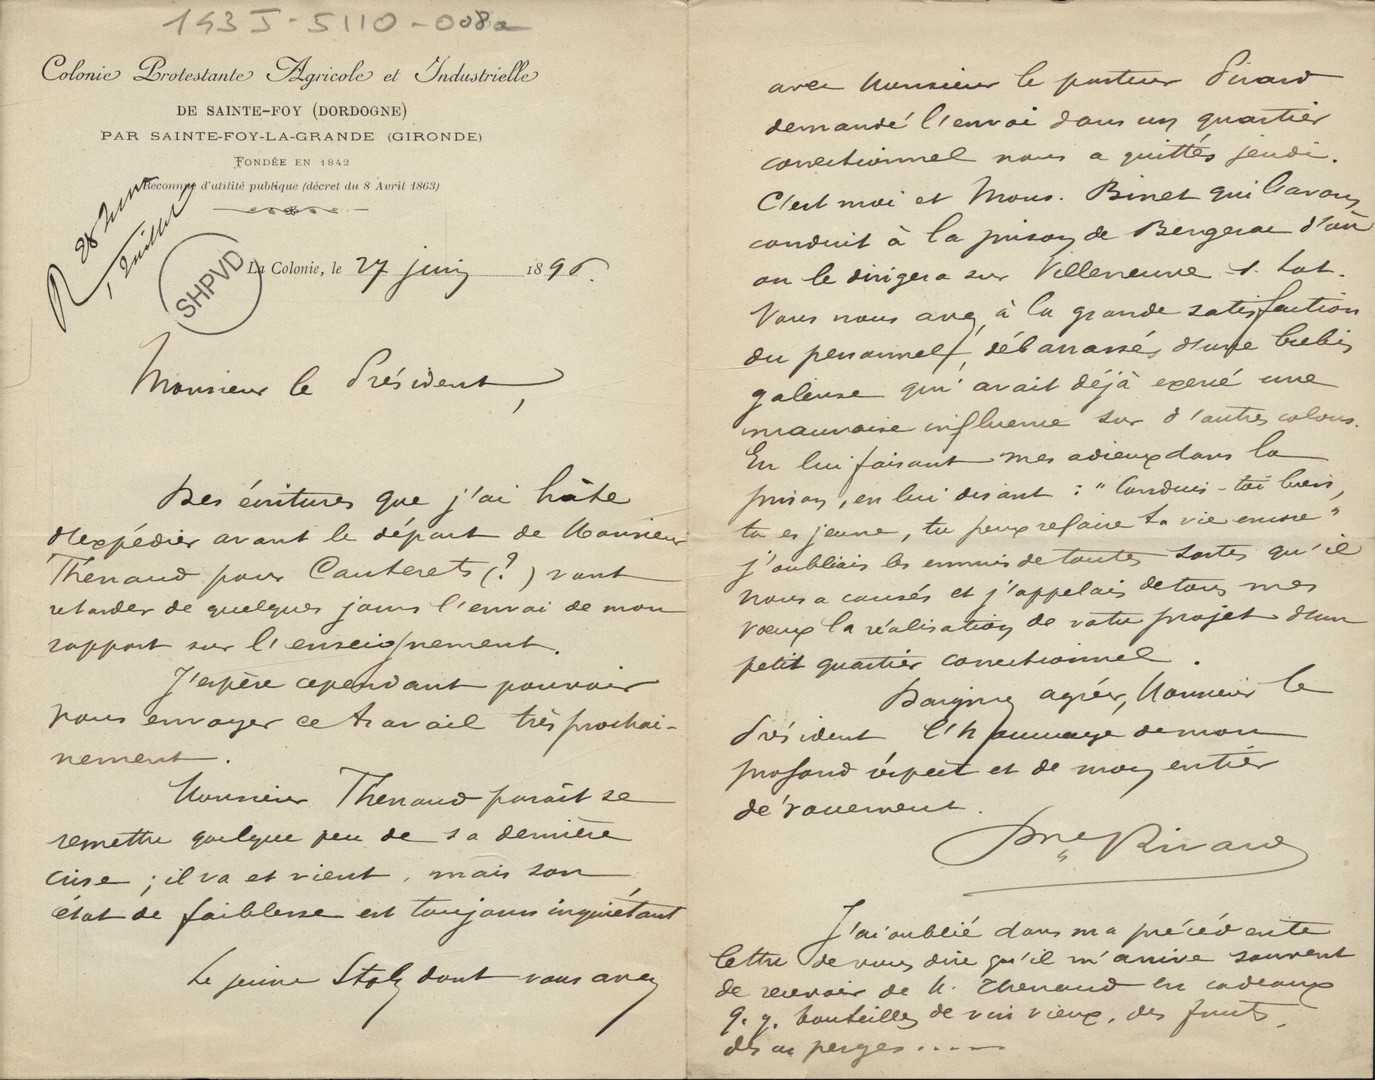 143 J-5110-008a
Colonie Protestante Agricole et Industrielle
DE SAINTE-FOY (DORDOGNE)
PAR SAINTE-FOY-LA-GRANDE (GIRONDE)
FONDÉE EN 1842
Reconnue d'utilité publique (décret du 8 Avril 1863)
R 28 Juin
1 Juillet
SHPVD
La Colonie, le 27 juin 1896.
Monsieur le Président,
Des écritures que j'ai hâte
d'expédier avant le départ de Monsieur
Thenaud pour Cauterets (?) vont
retarder de quelques jours l'envoi de mon
rapport sur l'enseignement.
J'espère cependant pouvoir
vous envoyer ce travail très prochai-
nement.
Monsieur Thenaud paraît se
remettre quelque peu de sa dernière
crise ; il va et vient, mais son
état de faiblesse est toujours inquiétant
Le jeune Stolz dont vous avez
avec Monsieur le pasteur Pirard
demandé l'envoi dans un quartier
correctionnel nous a quittés jeudi.
C'est moi et Mons. Binet qui l'avons
conduit à la prison de Bergerac d'où
on le dirigera sur Villeneuve s. Lot.
Vous nous avez, à la grande satisfaction
du personnel, débarrassés d'une brebis
galeuse qui avait déjà exercé une
mauvaise influence sur d'autres colons.
En lui faisant mes adieux dans la
prison, en lui disant : "Conduis-toi bien,
tu es jeune, tu peux refaire ta vie encore"
j'oubliais les ennuis de toutes sortes qu'il
nous a causés et j'appelais de tous mes
vœux la réalisation de votre projet d'un
petit quartier correctionnel.
Daignez agréer, Monsieur le
Président l'hommage de mon
profond respect et de mon entier
dévouement.
Rivard
J'ai oublié dans ma précédente
lettre de vous dire qu'il m'arrive souvent
de recevoir de M. Thenaud en cadeaux
q. q. bouteilles de vin vieux, des fruits,
des asperges.....